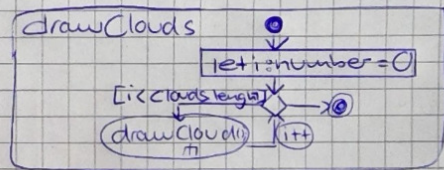 drawClouds
let i: number = 0
[i < clouds.length]
drawCloud()
i++